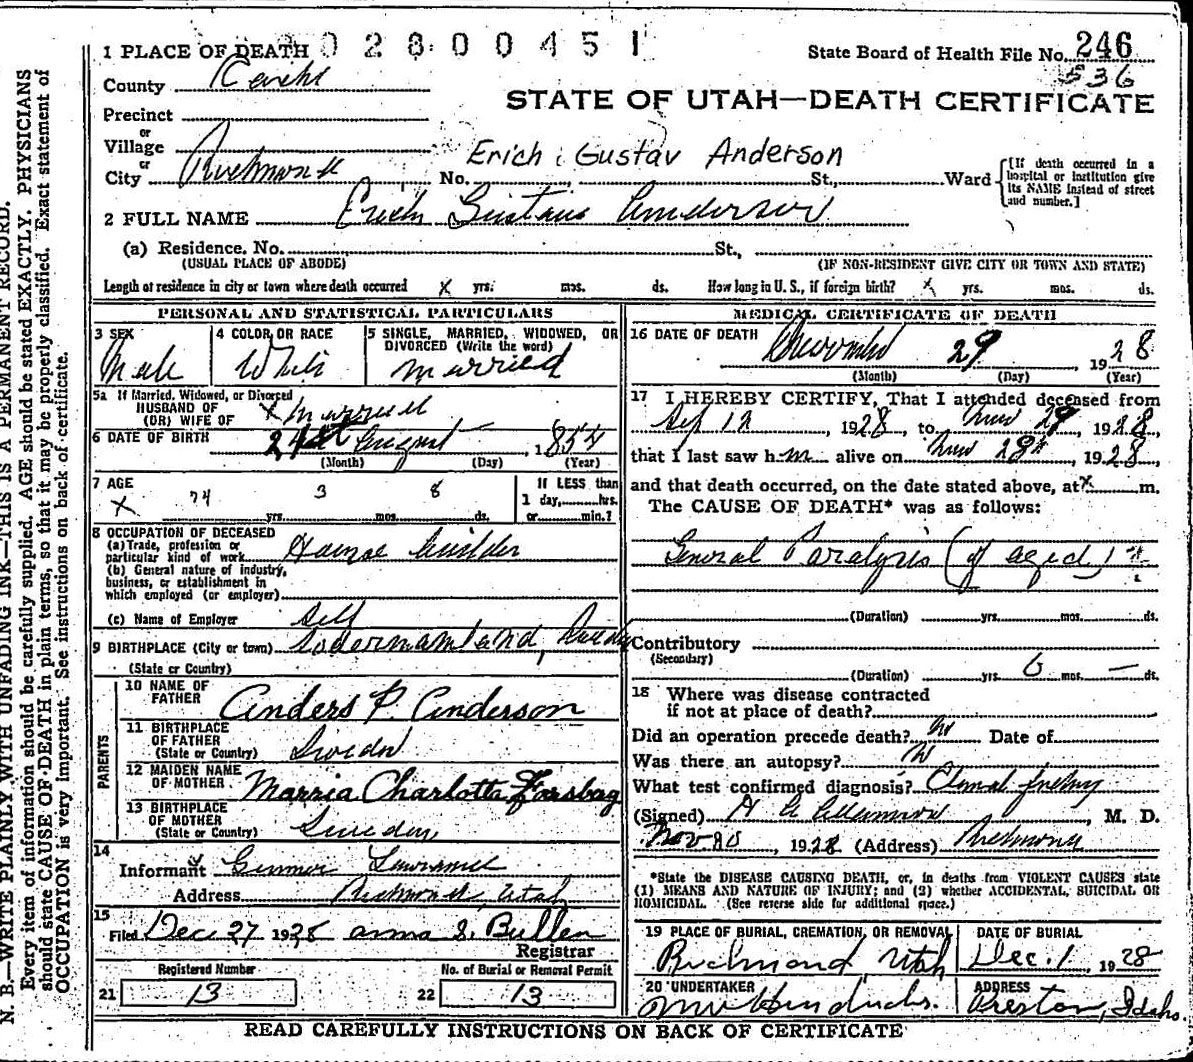 N. B.—WRITE PLAINLY WITH UNFADING INK—THIS IS A PERMANENT RECORD.
Every item of information should be carefully supplied. AGE should be stated EXACTLY. PHYSICIANS
should state CAUSE OF DEATH in plain terms, so that it may be properly classified. Exact statement of
OCCUPATION is very important. See instructions on back of certificate.
1 PLACE OF DEATH 02800451
State Board of Health File No. 246
536
County
STATE OF UTAH—DEATH CERTIFICATE
Precinct
or
Village
or
Erich Gustav Anderson
City Richmond No. St., Ward
[If death occurred in a
hospital or institution give
its NAME instead of street
and number.]
2 FULL NAME Erich Gustave Anderson
(a) Residence. No. St.,
(USUAL PLACE OF ABODE) (IF NON-RESIDENT GIVE CITY OR TOWN AND STATE)
Length of residence in city or town where death occurred x yrs. mos. ds. How long in U. S., if foreign birth? x yrs. mos. ds.
PERSONAL AND STATISTICAL PARTICULARS
3 SEX
Male
4 COLOR OR RACE
White
5 SINGLE, MARRIED, WIDOWED, OR
DIVORCED (Write the word)
Married
5a If Married, Widowed, or Divorced
HUSBAND OF
(OR) WIFE OF x married
6 DATE OF BIRTH
21st August 1854
(Month) (Day) (Year)
7 AGE
x 74 yrs. 3 mos. 8 ds.
If LESS than
1 day, hrs.
or min.?
8 OCCUPATION OF DECEASED
(a) Trade, profession or
particular kind of work House builder
(b) General nature of industry,
business, or establishment in
which employed (or employer)
(c) Name of Employer Self
9 BIRTHPLACE (City or town) Sodermanland, Sweden
(State or Country)
PARENTS
10 NAME OF
FATHER Anders P. Anderson
11 BIRTHPLACE
OF FATHER
(State or Country) Sweden
12 MAIDEN NAME
OF MOTHER Marria Charlotta Forsbag
13 BIRTHPLACE
OF MOTHER
(State or Country) Sweden
14
Informant
Address Richmond, Utah
15
Filed Dec 27 1928 Anna S. Bullen
Registrar
Registered Number
21 13
No. of Burial or Removal Permit
22 13
MEDICAL CERTIFICATE OF DEATH
16 DATE OF DEATH November 29, 1928
(Month) (Day) (Year)
17 I HEREBY CERTIFY, That I attended deceased from
Sep 12, 1928, to Nov 29, 1928,
that I last saw h m alive on Nov 28th, 1928,
and that death occurred, on the date stated above, at x m.
The CAUSE OF DEATH* was as follows:
General Paralysis (of aged)
(Duration) yrs. mos. ds.
Contributory
(Secondary)
(Duration) yrs. 6 mos. — ds.
18 Where was disease contracted
if not at place of death?
Did an operation precede death? No Date of
Was there an autopsy? No
What test confirmed diagnosis?
(Signed) , M. D.
Nov 30, 1928 (Address) Richmond
*State the DISEASE CAUSING DEATH, or, in deaths from VIOLENT CAUSES state
(1) MEANS AND NATURE OF INJURY; and (2) whether ACCIDENTAL, SUICIDAL OR
HOMICIDAL. (See reverse side for additional space.)
19 PLACE OF BURIAL, CREMATION, OR REMOVAL
Richmond, Utah
DATE OF BURIAL
Dec. 1, 1928
20 UNDERTAKER
ADDRESS
Preston, Idaho.
READ CAREFULLY INSTRUCTIONS ON BACK OF CERTIFICATE